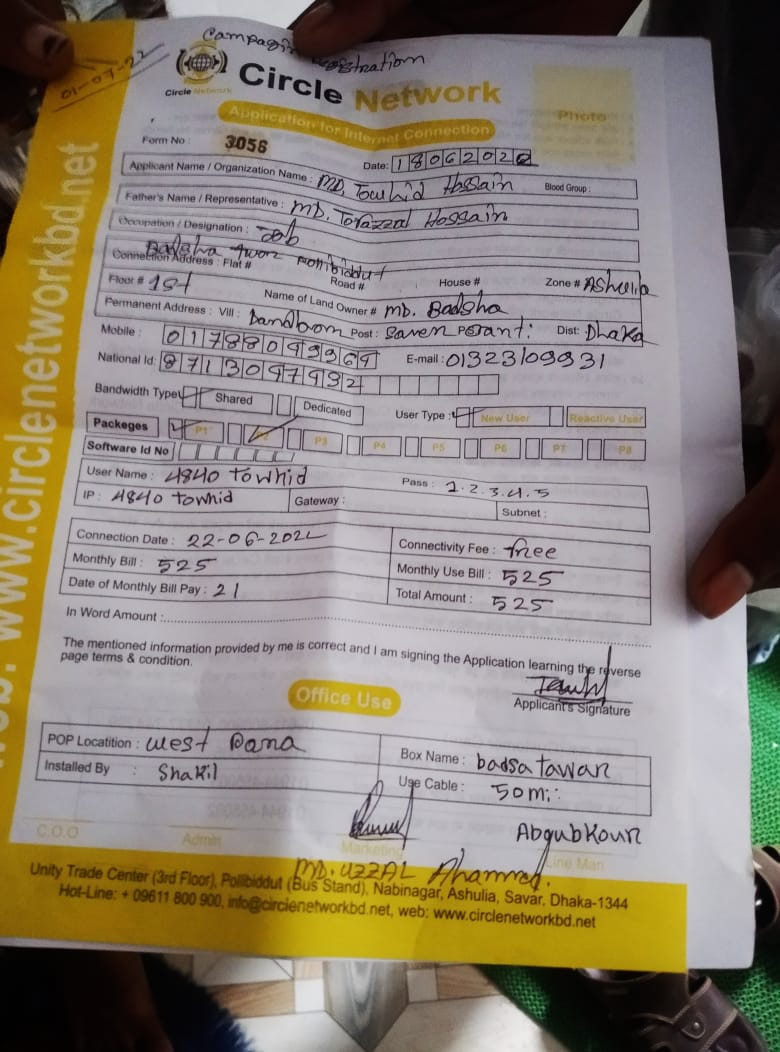 Campagin Registration
01-07-22
Circle Network
Circle Network
Application for Internet Connection
Photo
Form No : 3056
Date: 18062022
Applicant Name / Organization Name : MD. Towhid Hossain Blood Group :
Father's Name / Representative : MD. Tofazzal Hossain
Occupation / Designation : Job
Connection Address : Flat # Road # House # Zone # Ashulia
Floor # 1st Name of Land Owner # MD. Badsha
Permanent Address : Vill : Post : Dist: Dhaka
Mobile : E-mail : 01323109931
National Id: 8713097932
Bandwidth Type Shared Dedicated User Type : New User Reactive User
Packeges P1 P2 P3 P4 P5 P6 P7 P8
Software Id No
User Name : 4840 Towhid Pass : 1.2.3.4.5
IP : 4840 Towhid Gateway : Subnet :
Connection Date : 22-06-2022 Connectivity Fee : free
Monthly Bill : 525 Monthly Use Bill : 525
Date of Monthly Bill Pay : 21 Total Amount : 525
In Word Amount :
The mentioned information provided by me is correct and I am signing the Application learning the reverse
page terms & condition.
Applicant's Signature
Office Use
POP Locatition : West Pana Box Name : badsa tawar
Installed By : Shakil Use Cable : 50 mi:
C.O.O Admin Marketing Line Man
MD. UZZAL Ahammed.
Unity Trade Center (3rd Floor), Pollibiddut (Bus Stand), Nabinagar, Ashulia, Savar, Dhaka-1344
Hot-Line: + 09611 800 900, info@circlenetworkbd.net, web: www.circlenetworkbd.net
web: www.circlenetworkbd.net